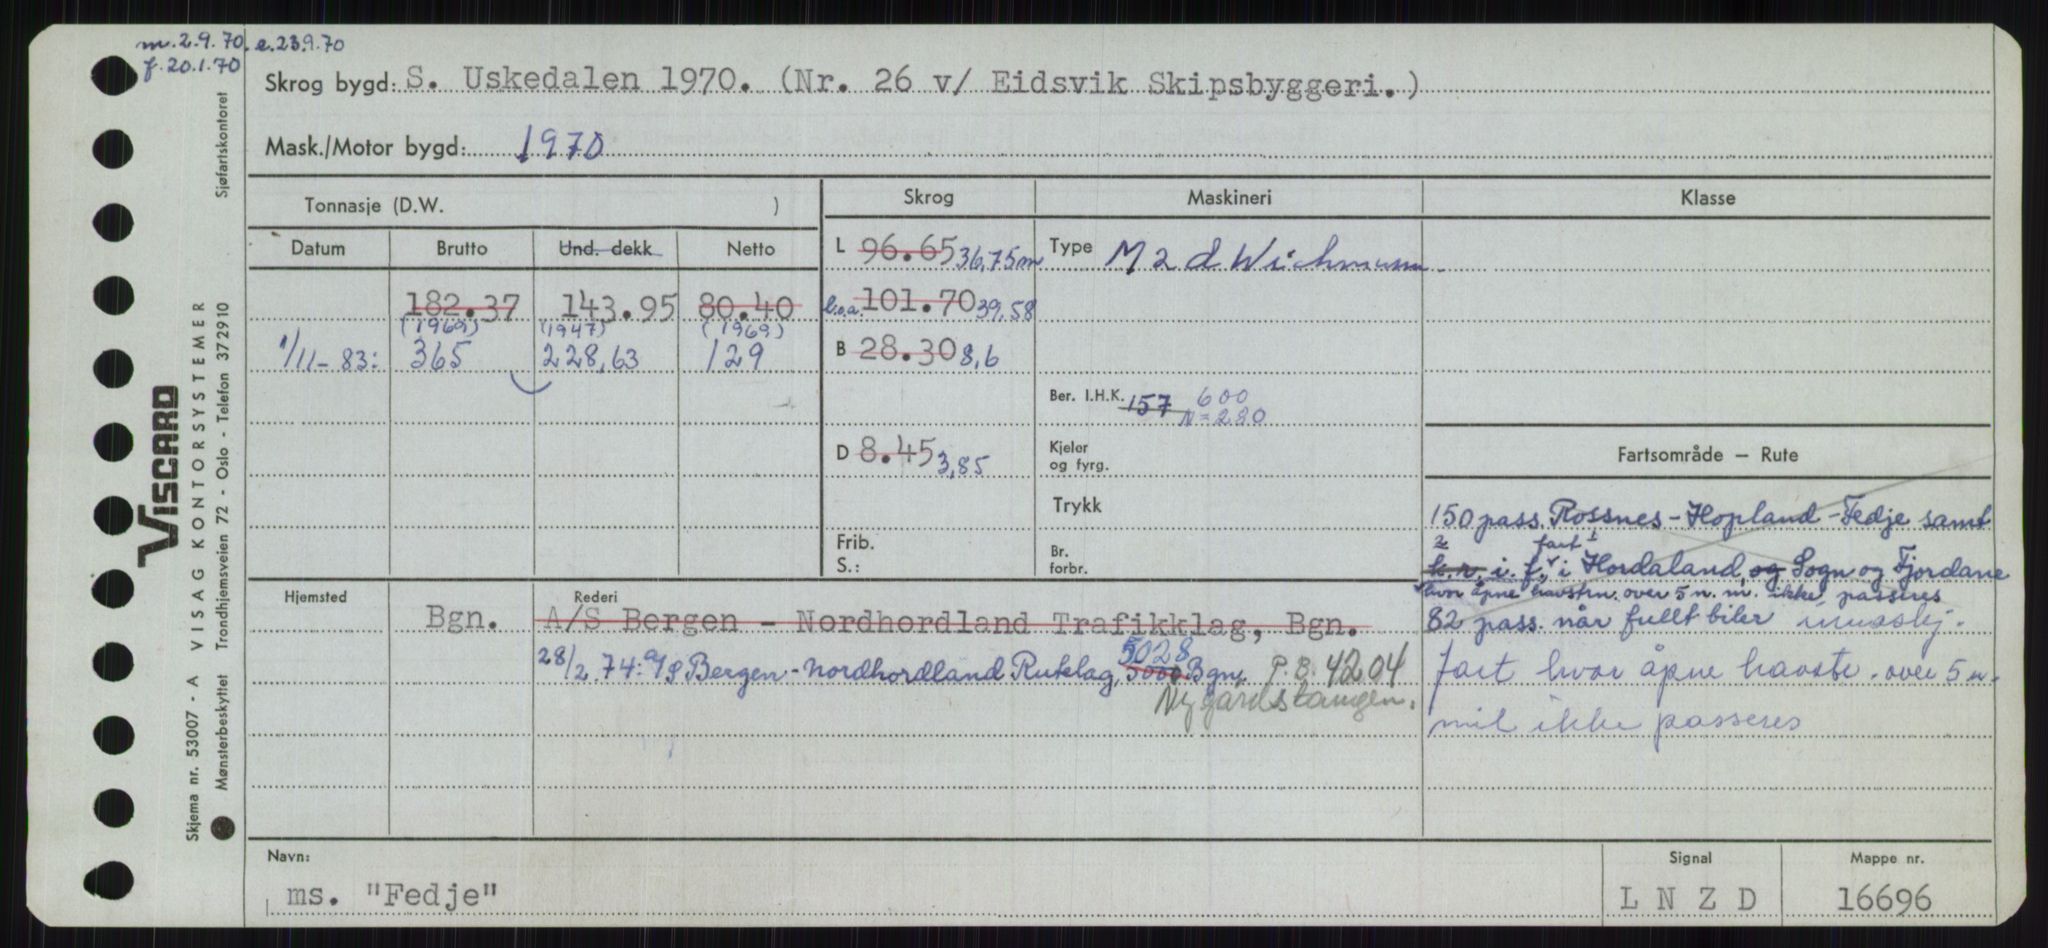 m. 2.9.70. e.23.9.70
f. 20.1.70
Skrog bygd: S. Uskedalen 1970. (Nr. 26 v/ Eidsvik Skipsbyggeri.)
Mask./Motor bygd: 1970
Tonnasje (D.W. )
Skrog Maskineri Klasse
Datum Brutto Und. dekk Netto
L 96.65 36,75m Type M 2 d Wichmann
182.37 143.95 80.40
l.o.a. 101.70 39,58
(1969) (1947) (1969)
1/11-83: 365 228,63 129
B 28.30 8,6
Ber. I.H.K. 157 600
N=280
D 8.45 3,85
Kjeler
og fyrg.
Trykk
Frib.
S.:
Br.
forbr.
Fartsområde – Rute
150 pass. Rossnes-Hopland-Fedje samt
fart
k.r. i. f. i Hordaland, og Sogn og Fjordane
hvor åpne havstrn. over 5 n. m. ikke passeres
82 pass. når fullt biler innskj.
fart hvor åpne havstr. over 5 n.
mil ikke passeres
Hjemsted Rederi
Bgn. A/S Bergen - Nordhordland Trafikklag, Bgn.
28/2.74: A/S Bergen-Nordhordland Rutelag, 5000 5028 Bgn. P.B. 4204
Nygårdstangen.
Navn: Signal Mappe nr.
ms. "Fedje" L N Z D 16696
Sjøfartskontoret
VISCARD
VISAG KONTORSYSTEMER
Skjema nr. 53007 - A
Mønsterbeskyttet Trondhjemsveien 72 - Oslo - Telefon 372910